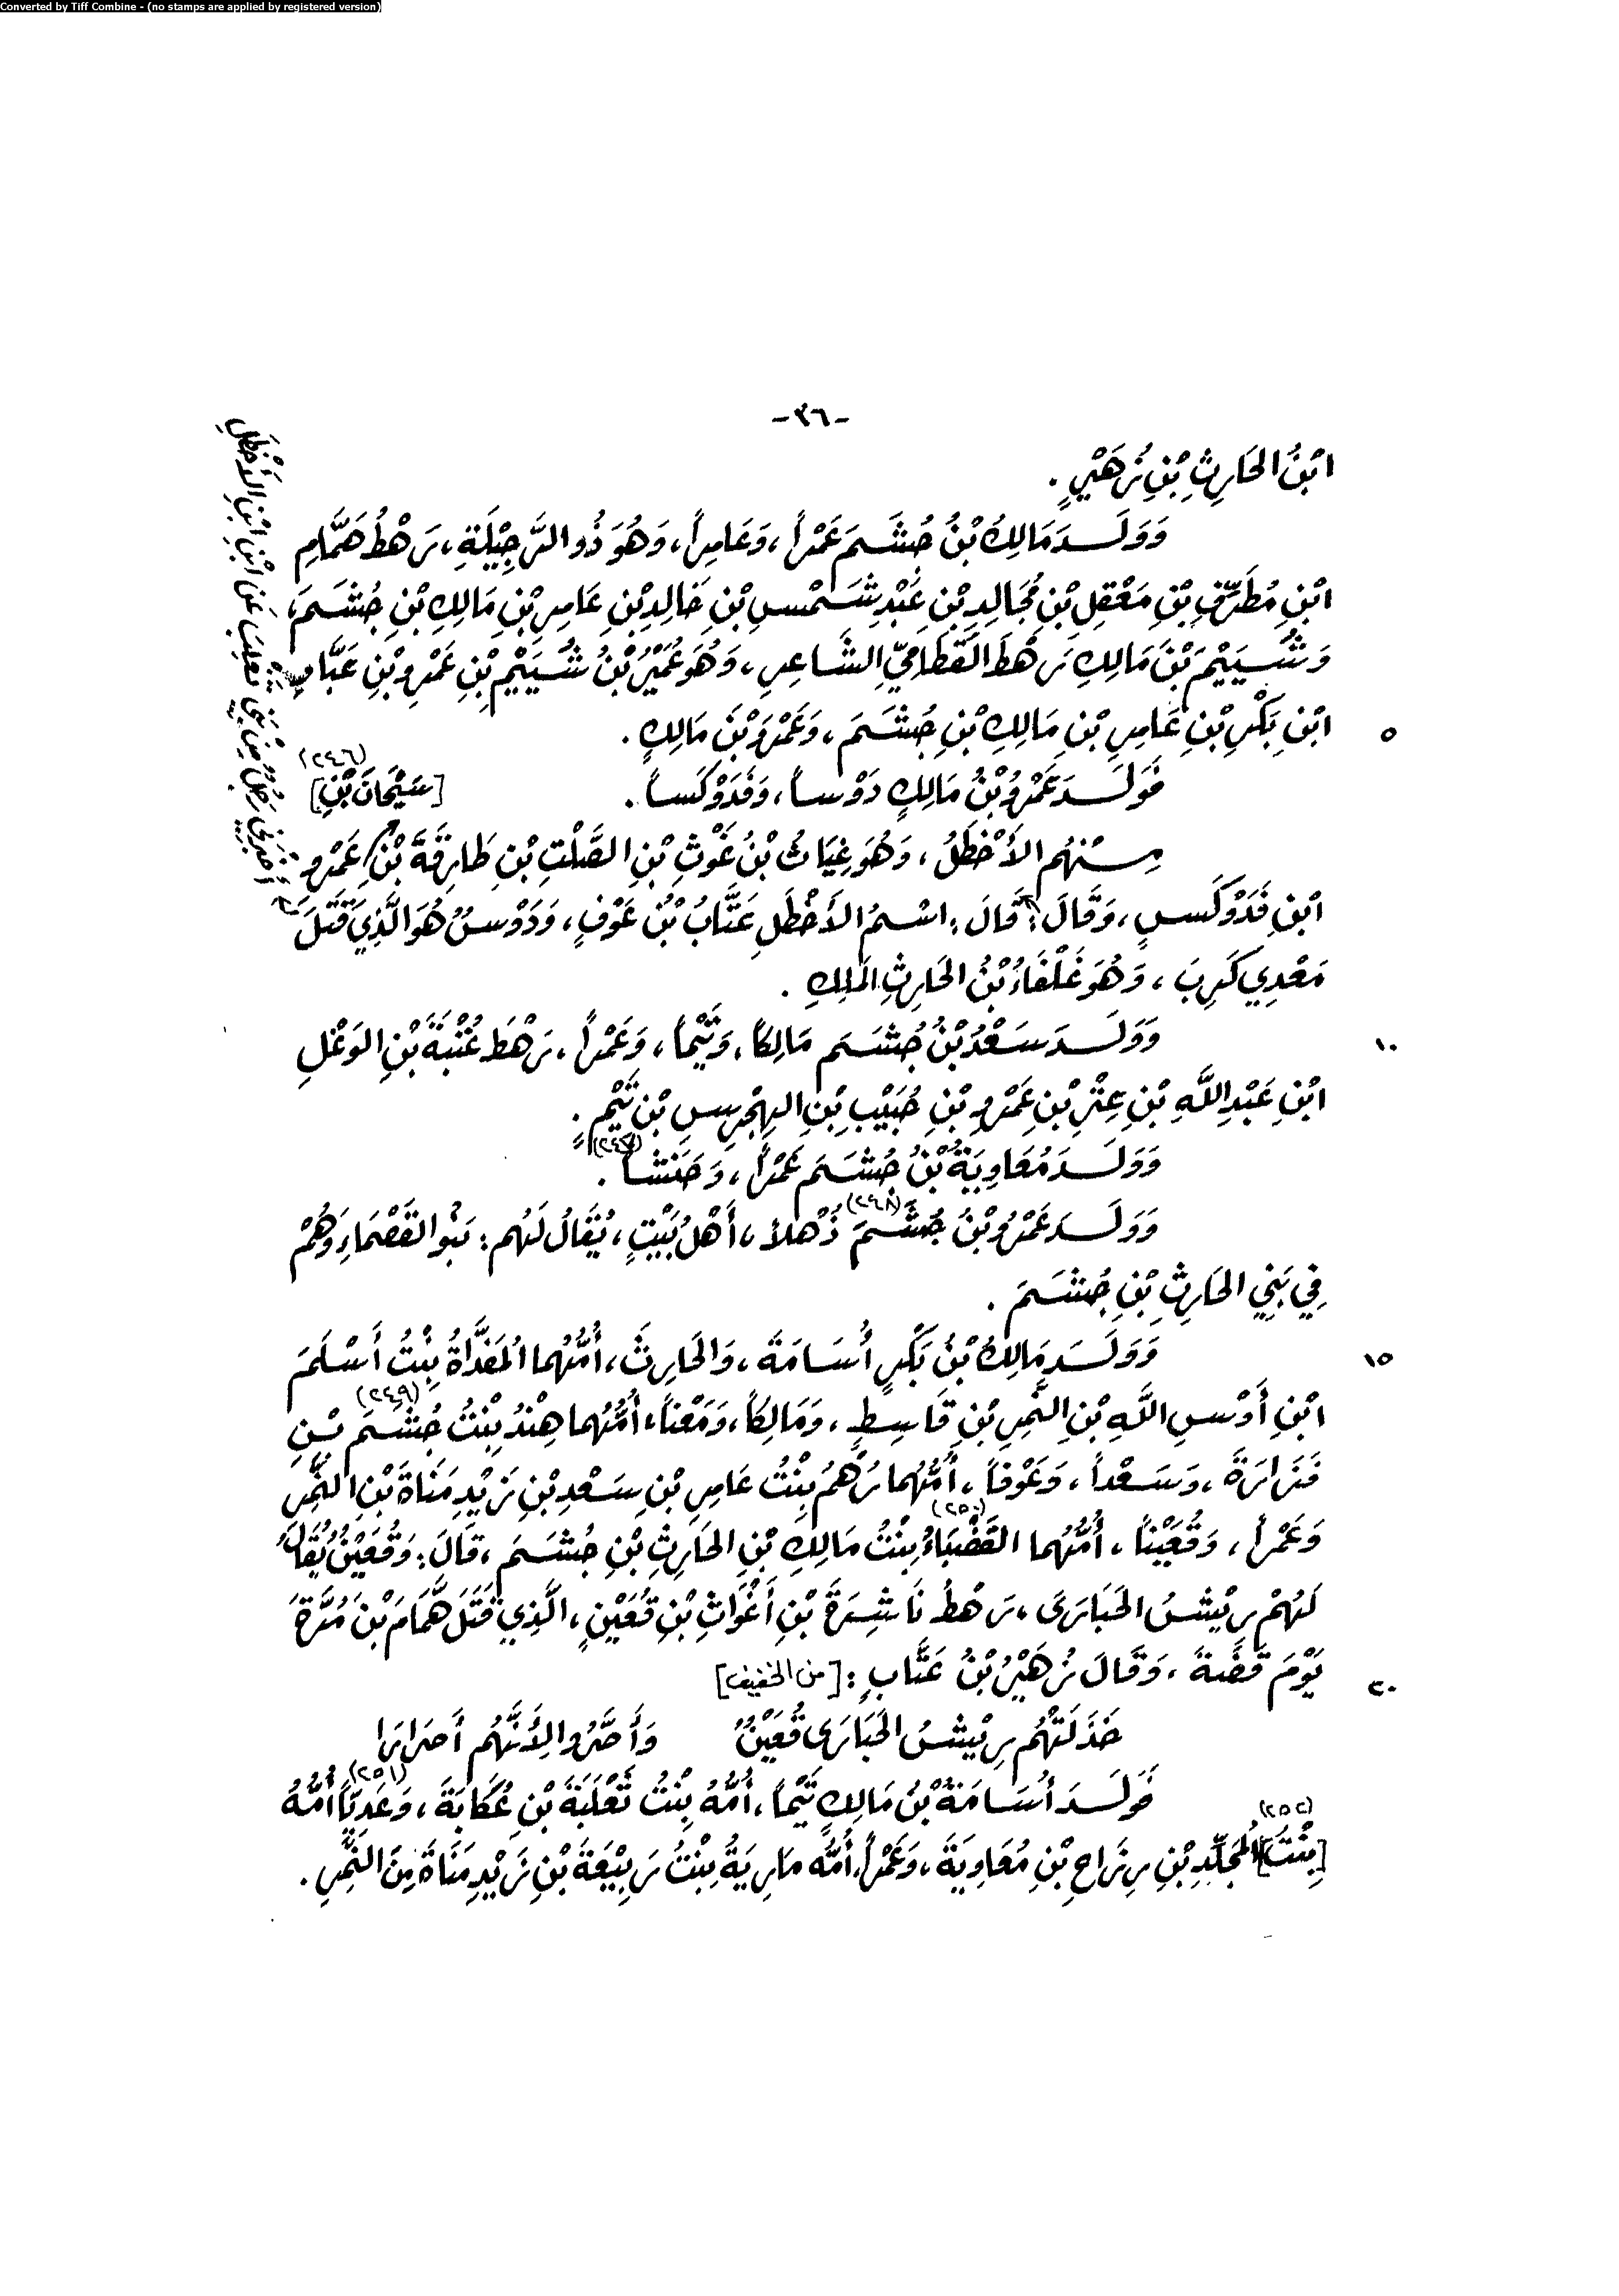 Converted by Tiff Combine - (no stamps are applied by registered version)
-٣٦-
ابْنُ الحَارِثِ بْنِ زُهَيْرٍ .
وَوَلَدَ مَالِكُ بْنُ جُشَمَ عَمْراً ، وَعَامِراً ، وَهُوَ ذُو الرَّجِيْلَةِ ، رَهْطُ هَمَّامِ
ابْنِ مُطَرِّفِ بْنِ مَعْقِلِ بْنِ مُجَالِدِ بْنِ عَبْدِ شَمْسِ بْنِ خَالِدِ بْنِ عَامِرِ بْنِ مَالِكِ بْنِ جُشَمَ ،
وَشُيَيْمَ بْنَ مَالِكٍ رَهْطَ القَطَامِيِّ الشَّاعِرِ ، وَهُوَ عُمَيْرُ بْنُ شُيَيْمِ بْنِ عَمْرِو بْنِ عَبَّادِ
٥ ابْنِ بَكْرِ بْنِ عَامِرِ بْنِ مَالِكِ بْنِ جُشَمَ ، وَعَمْرَو بْنَ مَالِكٍ .
فَوَلَدَ عَمْرُو بْنُ مَالِكٍ دَوْساً ، وَفَدَوْكَساً . [سَيْحَانَ بْنِ] (٢٤٦)
مِنْهُم الأَخْطَلُ ، وَهُوَ غِيَاثُ بْنُ غَوْثِ بْنِ الصَّلْتِ بْنِ طَارِقَةَ بْنِ عَمْرِو
ابْنِ فَدَوْكَسٍ ، وَقَالَ : قَالَ : اسْمُ الأَخْطَلِ عَتَّابُ بْنُ عَوْفٍ ، وَدَوْسٌ هُوَ الَّذِي قَتَلَ
مَعْدِي كَرِبَ ، وَهُوَ غَلْفَاءُ بْنُ الحَارِثِ المَلِكِ .
١٠ وَوَلَدَ سَعْدُ بْنُ جُشَمَ مَالِكاً ، وَتَيْماً ، وَعَمْراً ، رَهْطَ عُتْبَةَ بْنِ الوَغْلِ
ابْنِ عَبْدِ اللَّهِ بْنِ عِتْرِ بْنِ عَمْرِو بْنِ حُبَيْبِ بْنِ الهِجْرِسِ بْنِ تَيْمٍ .
وَوَلَدَ مُعَاوِيَةُ بْنُ جُشَمَ عَمْراً ، وَحَنَشاً (٢٤٧) .
وَوَلَدَ عَمْرُو بْنُ جُشَمَ (٢٤٨) ذُهْلاً ، أَهْلُ بَيْتٍ ، يُقَالُ لَهُم : بَنُو القَصْمَاءِ وَهُمْ
فِي بَنِي الحَارِثِ بْنِ جُشَمَ .
١٥ وَوَلَدَ مَالِكُ بْنُ بَكْرٍ أُسَامَةَ ، وَالحَارِثَ ، أُمُّهُما المُفَدَّاةُ بِنْتُ أَسْلَمَ
ابْنِ أَوْسِ اللَّهِ بْنِ النَّمِرِ بْنِ قَاسِطٍ ، وَمَالِكاً ، وَمَعْناً ، أُمُّهُما هِنْدُ بِنْتُ جُشَمَ (٢٤٩) بْنِ
فَزَارَةَ ، وَسَعْداً ، وَعَوْفاً ، أُمُّهُما رُهْمُ بِنْتُ عَامِرِ بْنِ سَعْدِ بْنِ زَيْدِ مَنَاةَ بْنِ النَّمِرِ
وَعَمْراً ، وَقُعَيْناً ، أُمُّهُما القَضْبَاءُ (٢٥٠) بِنْتُ مَالِكِ بْنِ الحَارِثِ بْنِ جُشَمَ ، قَالَ : وَقُعَيْنٌ يُقَالُ
لَهُمْ رِيْشُ الحَبَارَى ، رَهْطُ نَاشِرَةَ بْنِ أَغْوَاثِ بْنِ قُعَيْنٍ ، الَّذِي قَتَلَ هَمَّامَ بْنَ مُرَّةَ
٢٠ يَوْمَ قِضَةَ ، وَقَالَ زُهَيْرُ بْنُ عَتَّابٍ : [من الخفيف]
خَذَلَتْهُم رِيْشُ الحَبَارَى قُعَيْنٌ وَأَصَرُّوا لِأَنَّهُم أَصْرَارَا
فَوَلَدَ أُسَامَةُ بْنُ مَالِكٍ تَيْماً ، أُمُّهُ بِنْتُ ثَعْلَبَةَ بْنِ عُكَابَةَ ، وَعَدِيّاً (٢٥١) أُمُّهُ
[بِنْتُ] (٢٥٢) المُجَلِّدِ بْنِ رِزَاحِ بْنِ مُعَاوِيَةَ ، وَعَمْراً ، أُمُّه مَارِيَةُ بِنْتُ رَبِيْعَةَ بْنِ زَيْدِ مَنَاةَ مِنَ النَّمِرِ .
أَخْبَرَنِي رَجُلٌ مِنْ بَنِي تَغْلِبَ عَنِ ابْنِ ابْنِ الأَخْطَلِ